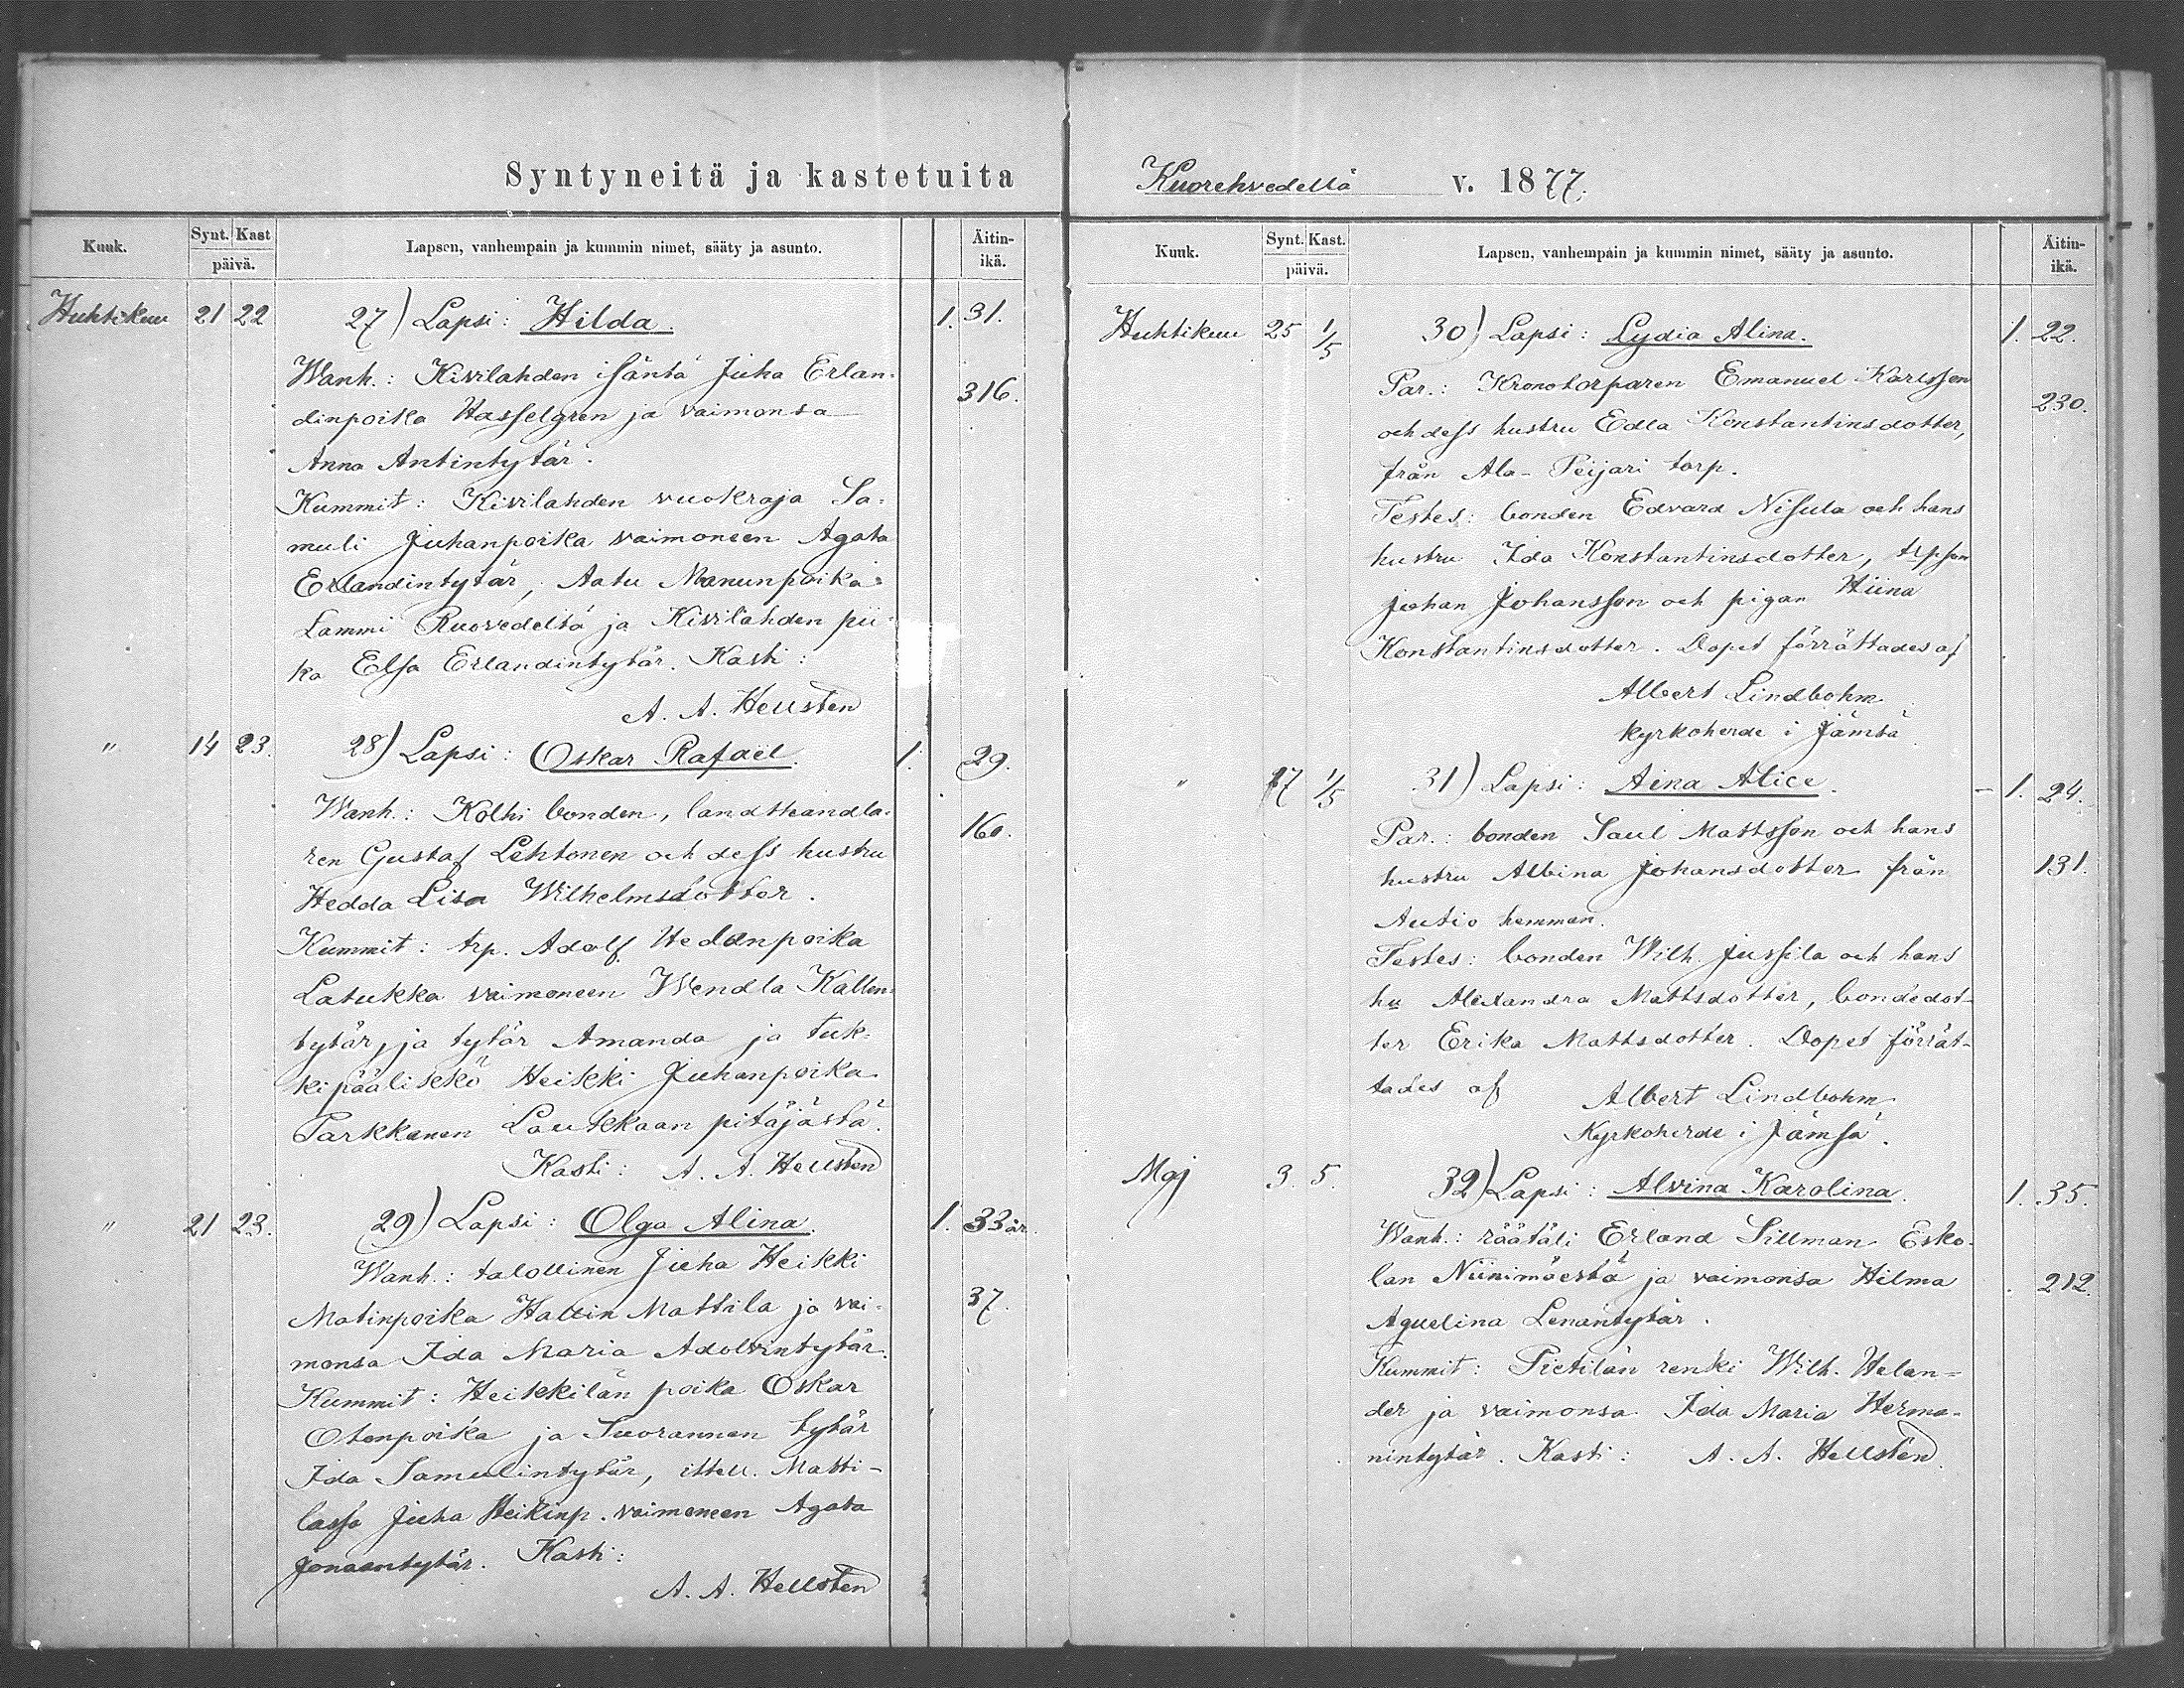 Syntyneitä ja kastetuita
Kuuk. Synt. Kast päivä. Lapsen, vanhempain ja kummin nimet, sääty ja asunto. Äitin-ikä.
Huhtikuu 21 22 27) Lapsi: Hilda. 1. 31.
Wanh.: Kivilahden isäntä Juha Erlan-
316.
dinpoika Hasselgren ja vaimonsa
Anna Antintytär.
Kummit: Kivilahden vuokraja Sa-
muli Juhanpoika vaimoneen Agata
Erlandintytär, Aatu Manunpoika
Lammi Ruovedeltä ja Kivilahden pii-
ka Elsa Erlandintytär. Kasti:
A. A. Hellsten
" 14 23. 28) Lapsi: Oskar Rafael. 1. 29.
Wanh.: Kolhi bonden, landthandla-
160.
ren Gustaf Lehtonen och dess hustru
Hedda Lisa Wilhelmsdotter.
Kummit: trp. Adolf Hedanpoika
Latukka vaimoneen Wendla Kallen-
tytär, ja tytär Amanda ja tuk-
kipäälikkö Heikki Juhanpoika
Parkkonen Laukkaan pitäjästä.
Kasti: A. A. Hellsten
" 21 23. 29) Lapsi: Olga Alina. 1. 33 år.
Wanh.: talollinen Juha Heikki
37.
Matinpoika Hallin Mattila ja vai-
monsa Ida Maria Adolvintytär.
Kummit: Heikkilän poika Oskar
Otonpoika ja Suorannan tytär
Ida Samulintytär, itsell. Matti-
lassa Juha Heikinp. vaimoneen Agata
Jonaantytär. Kasti:
A. A. Hellsten
Kuorehvedellä v. 1877.
Kuuk. Synt. Kast. päivä. Lapsen, vanhempain ja kummin nimet, sääty ja asunto. Äitin-ikä.
Huhtikuu 25 1/5 30) Lapsi: Lydia Alina. 1. 22.
Par.: Kronotorparen Emanuel Karlsson
230.
och dess hustru Edla Konstantinsdotter,
från Ala-Peijari torp.
Testes: bonden Edvard Nisula och hans
hustru Ida Konstantinsdotter, trpson
Johan Johansson och pigan Hiina
Konstantinsdotter. Dopet förrättades af
Albert Lindbohm
kyrkoherde i Jämsä
" 17 1/5 31) Lapsi: Aina Alice. - 1. 24.
Par.: bonden Saul Mattsson och hans
hustru Albina Johansdotter från
131.
Autio hemman.
Testes: bonden Wilh. Jussila och hans
hu Alexandra Mattsdotter, bondedot-
ter Erika Mattsdotter. Dopet förrät-
tades af Albert Lindbohm
Kyrkoherde i Jämsä.
Maj 3. 5. 32) Lapsi: Alvina Karolina. 1. 35.
Wanh.: räätäli Erland Sillman Esko-
lan Niinimäestä ja vaimonsa Hilma
212.
Aquelina Lenantytär.
Kummit: Pietilän renki Wilh. Helan-
der ja vaimonsa Ida Maria Herma-
nintytär. Kasti: A. A. Hellsten